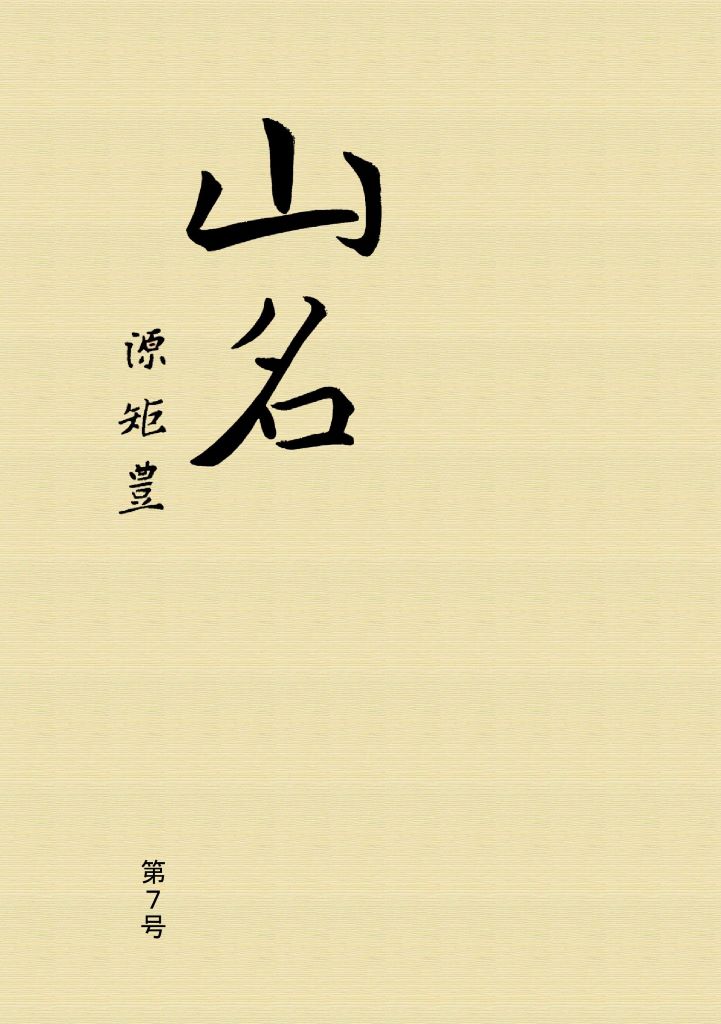 山名
源矩豊
第7号